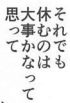 それでも
休むのは
大事かなって
思って